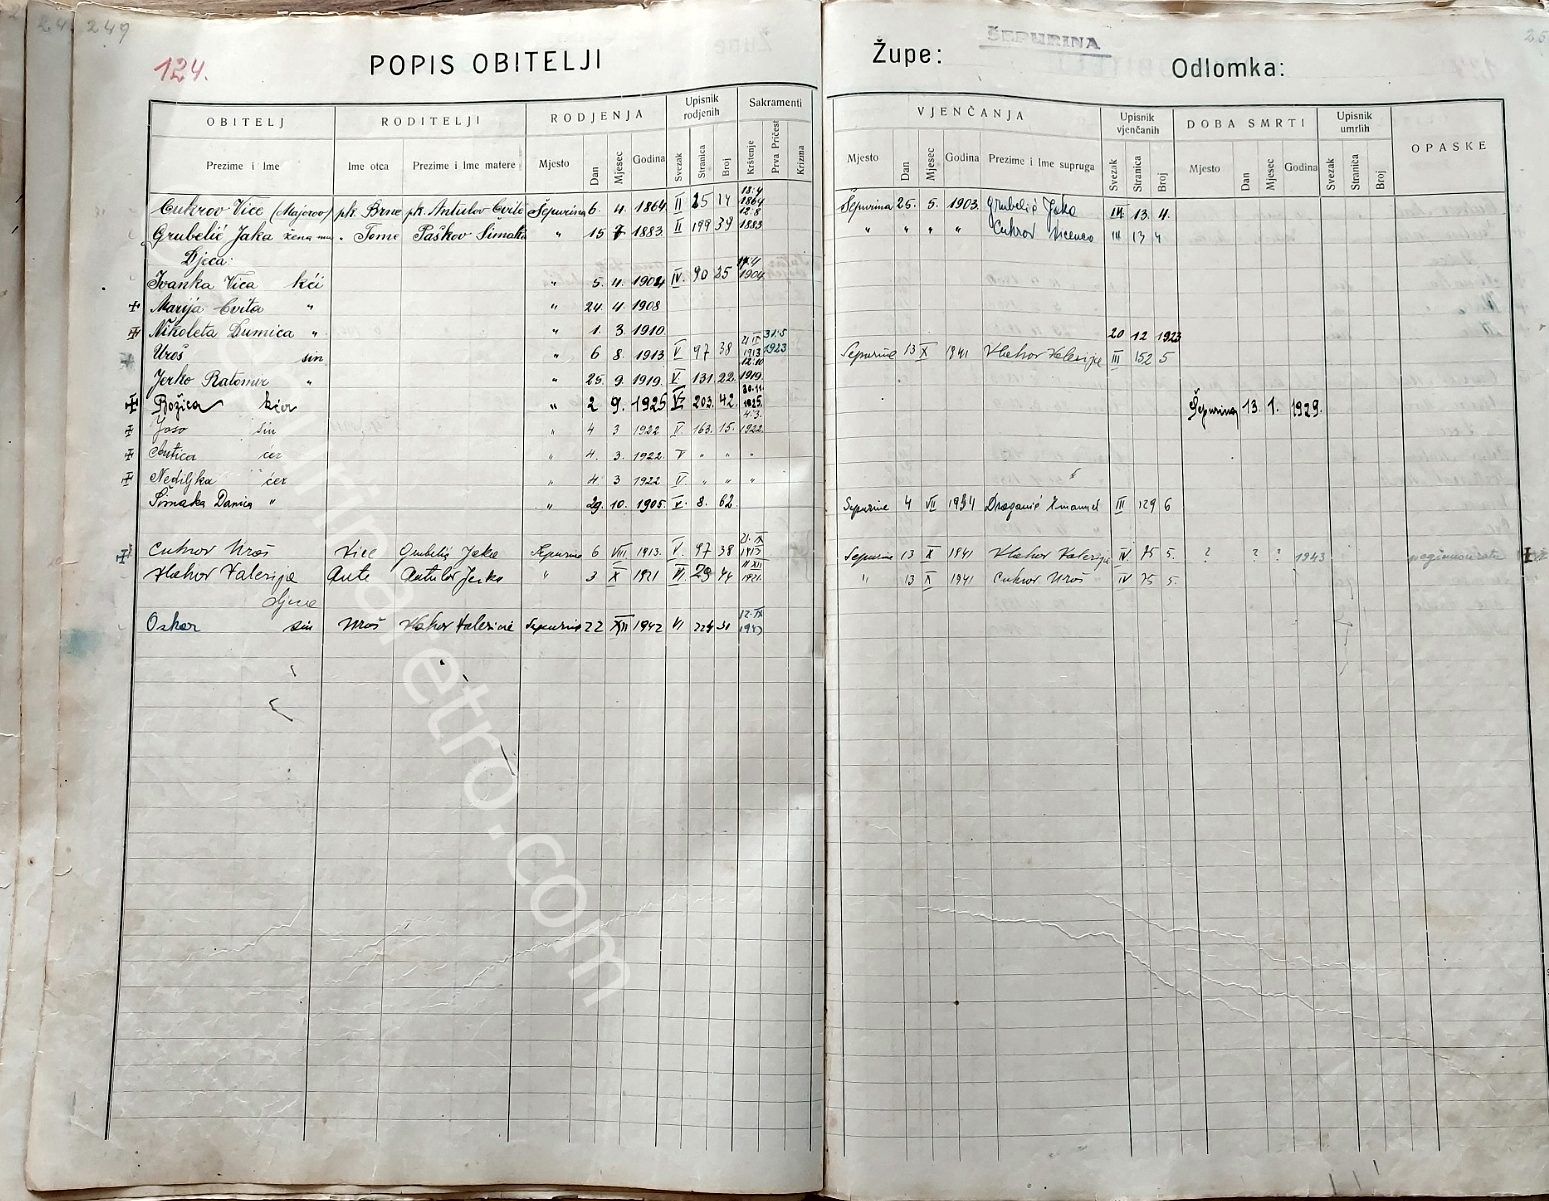 249
124.
POPIS OBITELJI
Župe: ŠEPURINA Odlomka:
OBITELJ RODITELJI RODJENJA Upisnik rodjenih Sakramenti VJENČANJA Upisnik vjenčanih DOBA SMRTI Upisnik umrlih OPASKE
Prezime i Ime Ime otca Prezime i Ime matere Mjesto Dan Mjesec Godina Svezak Stranica Broj Krštenje Prva Pričest Krizma Mjesto Dan Mjesec Godina Prezime i Ime supruga Svezak Stranica Broj Mjesto Dan Mjesec Godina Svezak Stranica Broj
Cukrov Vice (Majorov) pk. Brne pk. Antulov Cvite Šepurina 6 4. 1864 II 25 14 18.4 1864 Šepurina 25. 5. 1903. Grubelić Jaka III. 13. 4.
Grubelić Jaka žena mu . Tome Paškov Šimaka " 15 7 1883. II 199 39 12.8 1883 " " " " Cukrov Vicenco III 13 4
Djeca:
Ivanka Vica kći " 5. 4. 1904 IV. 90 25 1904
Marija Cvita " " 24 4 1908
Nikoleta Dumica " " 1. 3. 1910 20 12 1923
Uroš sin " 6 8. 1913 V 97 38 1913 31.5 1923 Šepurine 13 X 1941 Vlahov Valerija III 152 5
Jerko Ratomir " " 25. 9. 1919. V. 131. 22. 12.10 1919.
Božica kćer " 2 9. 1925 VI 203. 42. 30.11. 1925. Šepurina 13. 1. 1929.
Joso sin " 4 3 1922 V. 163. 15. 4.3. 1922.
Antica ćer " 4. 3. 1922. V " " "
Nediljka ćer " 4 3 1922 V. " " "
Šimaka Danica " " 29. 10. 1905. V. 8. 62 Šepurine 4 VII 1934 Draganić Emanuel III 129 6
Cukrov Uroš Vice Grubelić Jaka Šepurine 6 VIII. 1913. V. 97 38 21. IX 1913 Šepurine 13 X 1941 Vlahov Valerija IV. 75 5. ? ? ? 1943
Vlahov Valerija Ante Antulov Jerka " 3 X 1921 VI 29 74 11 XII 1921. " 13 X 1941 Cukrov Uroš IV 75 5.
Djeca
Oskar sin Uroš Vlahov Valerija Šepurine 22 XII 1942 VI 224 31 12. IX 1943